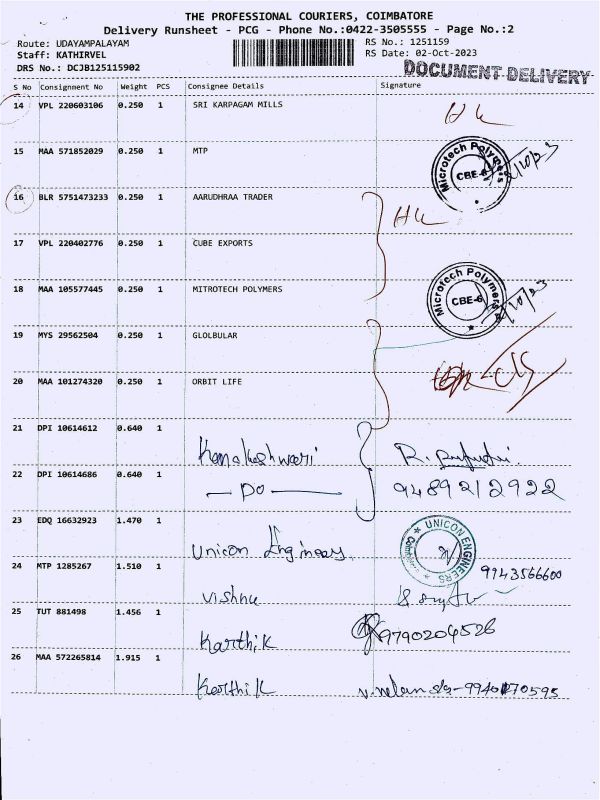 THE PROFESSIONAL COURIERS, COIMBATORE
Delivery Runsheet - PCG - Phone No.:0422-3505555 - Page No.:2
Route: UDAYAMPALAYAM RS No.: 1251159
Staff: KATHIRVEL RS Date: 02-Oct-2023
DRS No.: DCJB125115902 DOCUMENT DELIVERY
S No Consignment No Weight PCS Consignee Details Signature
14 VPL 220603106 0.250 1 SRI KARPAGAM MILLS
15 MAA 571852029 0.250 1 MTP Microtech Polymers CBE-6
16 BLR 5751473233 0.250 1 AARUDHRAA TRADER
17 VPL 220402776 0.250 1 CUBE EXPORTS
18 MAA 105577445 0.250 1 MITROTECH POLYMERS Microtech Polymers CBE-6
19 MYS 29562504 0.250 1 GLOLBULAR
20 MAA 101274320 0.250 1 ORBIT LIFE
21 DPI 10614612 0.640 1 R.
22 DPI 10614686 0.640 1 — DO — 9489212922
23 EDQ 16632923 1.470 1 Unicon UNICON ENGINEERS
24 MTP 1285267 1.510 1 Vishnu 9943566600
25 TUT 881498 1.456 1 Karthik 9790204526
26 MAA 572265814 1.915 1 Karthik